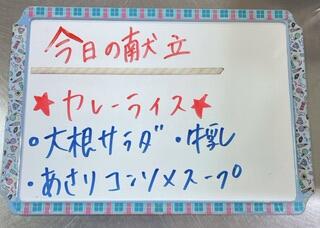 今日の献立
★カレーライス★
○大根サラダ・牛乳
・あさりコンソメスープ